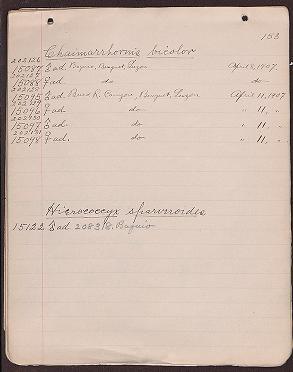 153
Chaimarrhornis bicolor
202126
15087 ad. Baguio, Benguet, Luzon April 8, 1907.
202127
15088 ad. do do
15095 ad. Bued R. Canyon, Benguet, Luzon April 11, 1907
15096 ad. do " 11, "
202130
15097 ad. do " 11, "
202131
15098 ad. do " 11, "
Hierococcyx sparverioides
15122 ad 20838. Baguio